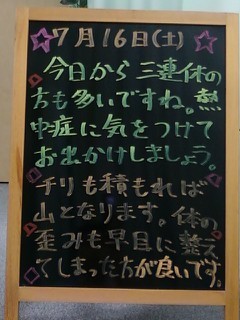 7月16日(土)
今日から三連休の
方も多いですね。熱
中症に気をつけて
お出かけしましょう。
チリも積もれば
山となります。体の
歪みも早目に整え
てしまった方が良いです。